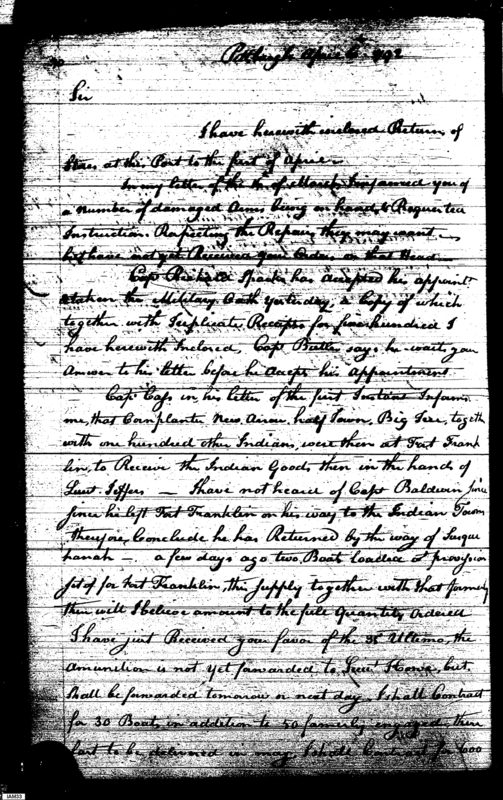 Pittsburgh April 6 1792
Sir
I have herewith enclosed Return of
Stores at this Post to the first of April
In my letter of the of March, I informed you of
a number of damaged Arms being on hand, & Requested
Instruction Respecting the Repairs they may want
but have not yet Received your Orders on that Head
Capt Richard Sparks has accepted his appoint
& taken the Military Oath yesterday, a Copy of which
together with Triplicate Receipts for hundred I
have herewith Inclosed, Capt Butler says he waits your
answer to his letter before he accepts his Appointment
Capt Cass in his letter of the first Instant Informs
me, that Cornplanter New Arrow, half Town, Big Tree, togeth
with one hundred other Indians, were then at Fort Frank
lin, to Receive the Indian Goods then in the hand of
Lieut Jeffers — I have not heard of Capt Baldwin since
since he left Fort Franklin on his way to the Indian Towns
therefore, Conclude he has Returned by the way of Susque
hanah — a few days ago two Boats loaded with provision
set of for Fort Franklin, this supply together with that formerly
there will I believe amount to the full Quantity Ordered
I have just Received your favor of the Ultimo, the
Amunition is not yet forwarded to Lieut Howe, but
shall be forwarded tomorrow or next day. I shall Contract
for 30 Boats, in addition to 50 formerly engaged, these
last to be delivered in may, I shall Contract for 600
IAM33